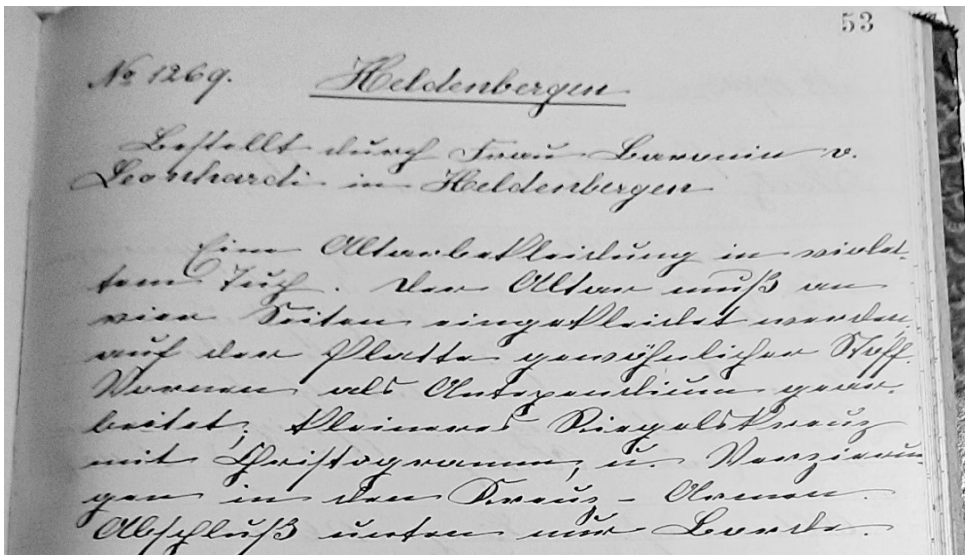 53
No 1269. Heldenbergen
Bestellt durch Frau Baronin v.
Leonhardi in Heldenbergen
Eine Altarbekleidung in violet-
tem Tuch. Der Altar muß an
vier Seiten eingekleidet werden,
auf der Platte gewöhnlicher Stoff.
Vornen als Antependium gear-
beitet; kleineres Siegelskreuz
mit Christogramm, u. Verzierun-
gen in den Kreuz-Armen.
Abschluß unten nur Borde.